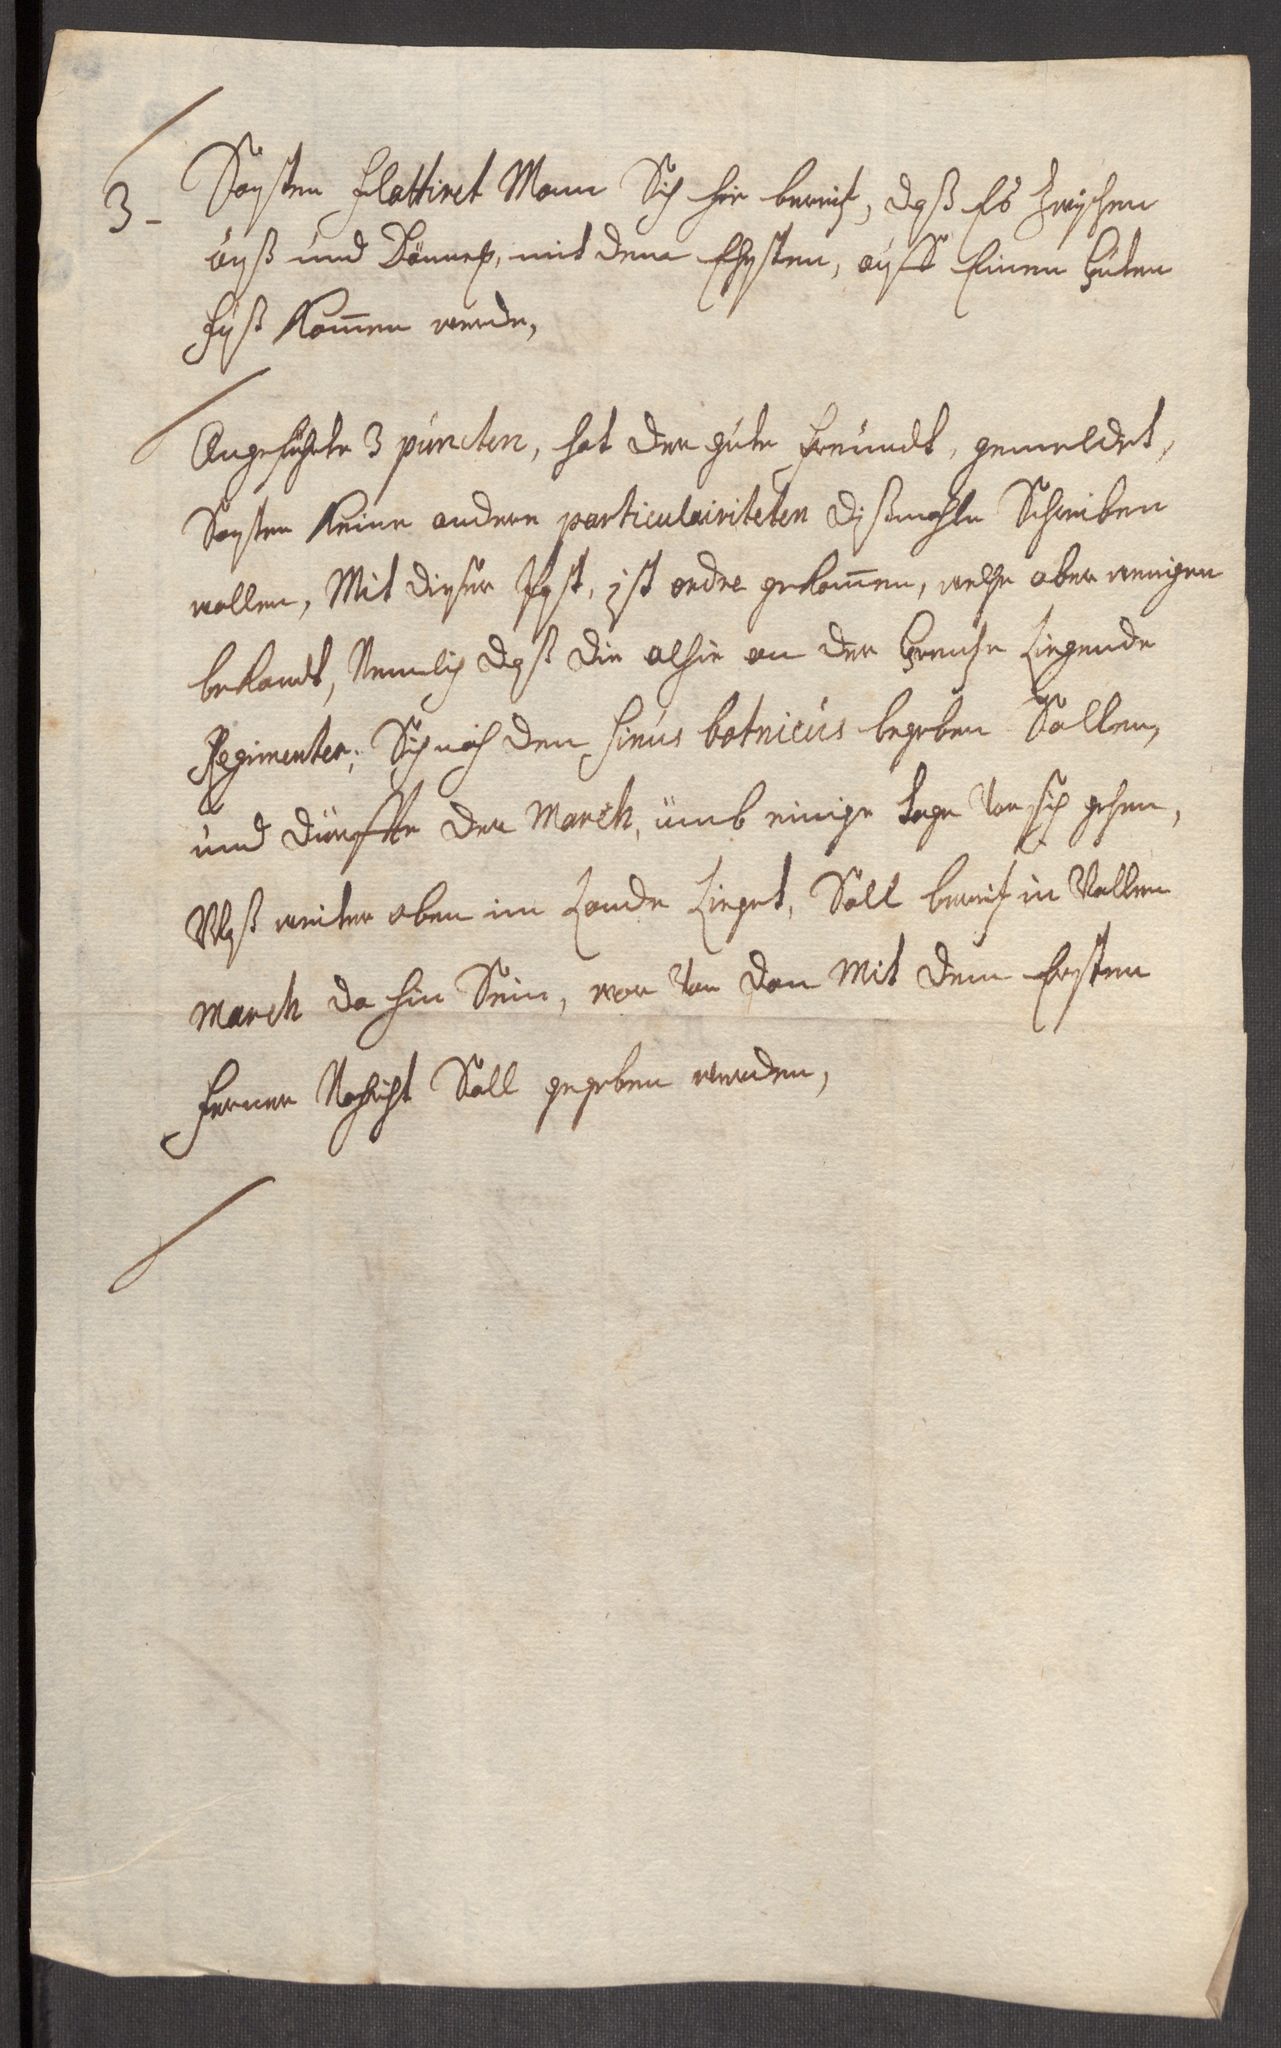 3 - Sonsten flattiret Mann Sich hier bereist, daß Es zwischen
unß und Dännem. mit dem Ehysten, auff Einen guten
fuß Kom̄en werde,
Angeführte 3 puncten, hat der gute freundt, gemeldet,
Sonsten Keine andere particulairiteten dißmahle Schreiben
wollen, Mit dieser Post, ist ordre gekom̄en, welche aber wenigen
bekandt, Nemlich daß die alhie an der Grentze Liegende
Regimenter, Sich nach den Sinus botnicus begeben Sollen,
und dürffte der March, umb einige tage vor sich gehen,
Waß weiter oben im Lande Lieget, Soll bereits in Vollen
March da hin Sein, wor von dan Mit dem Ersten
ferner Nachricht Soll gegeben werden,